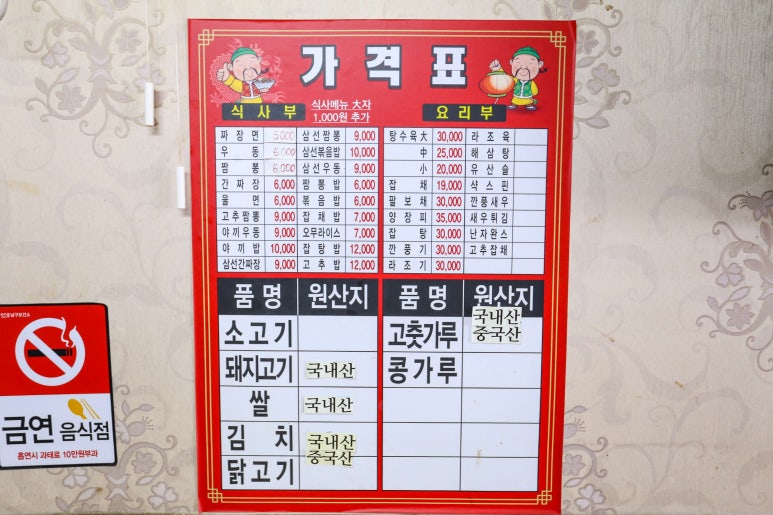 가격표
식사부
식사메뉴 大자
1,000원 추가
요리부
짜장면 5,000 삼선짬뽕 9,000
우동 6,000 삼선볶음밥 10,000
짬뽕 6,000 삼선우동 9,000
간짜장 6,000 짬뽕밥 6,000
울면 6,000 볶음밥 6,000
고추짬뽕 9,000 잡채밥 7,000
야끼우동 9,000 오무라이스 7,000
야끼밥 10,000 잡탕밥 12,000
삼선간짜장 9,000 고추밥 12,000
탕수육大 30,000 라조육
中 25,000 해삼탕
小 20,000 유산슬
잡채 19,000 샥스핀
팔보채 30,000 깐풍새우
양장피 35,000 새우튀김
잡탕 30,000 난자완스
깐풍기 30,000 고추잡채
라조기 30,000
품명 원산지 품명 원산지
소고기 고춧가루 국내산
중국산
돼지고기 국내산 콩가루
쌀 국내산
김치 국내산
중국산
닭고기
금연 음식점
흡연시 과태료 10만원부과